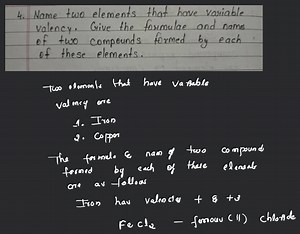 4. Name two elements that have variable
valency. Give the foumulae and name
of two compounds formed by each
of these elements.
Two elements that have variable
valency are
1. Iron
2. Copper
The formula & nam of two compound
formed by each of these elements
are as follows
Iron has valencies + 2 + 3
FeCl2 – ferrous (II) chloride